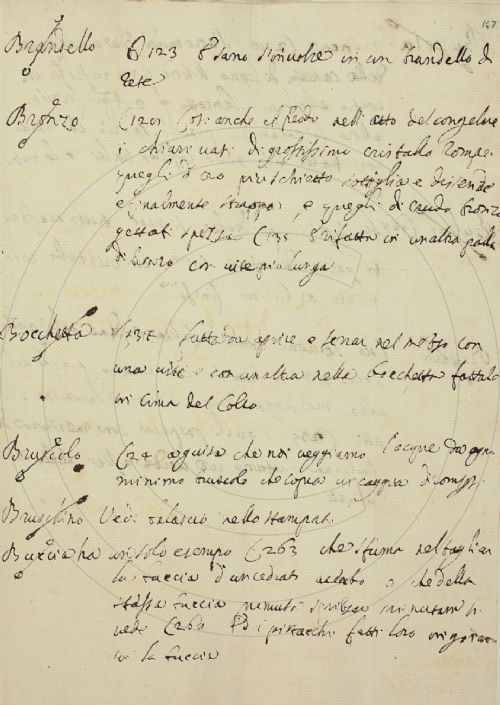 157
Brandello C 123 E sano s'involse in un brandello di
rete
Bronzo C120 Così anche il freddo nell'atto del congelare
i chiari vasi di grossissimo cristallo rompe
quegli d'oro più schietto sottiglia e distende
e finalmente strappa, e quegli di crudo bronzo
gettati spezza C 135 rifatta in un'altra palla
di bronzo con vite più lunga
Bocchetta C137 aprire e serrar nel mezzo con
una vite e con un'altra nella bocchetta fattale
in cima del collo
Bruscolo C24 a guisa che noi veggiamo l'acque da ogni
minimo bruscolo che sopra vi caggia di
Bruschino Vedi nello stampat.
Buccia ha un solo esempio C263 che sfuma nel tagliar
la buccia d'un cedrato acerbo, o che della
stessa buccia
vedi C264 i pistacchi fatti loro
la buccia